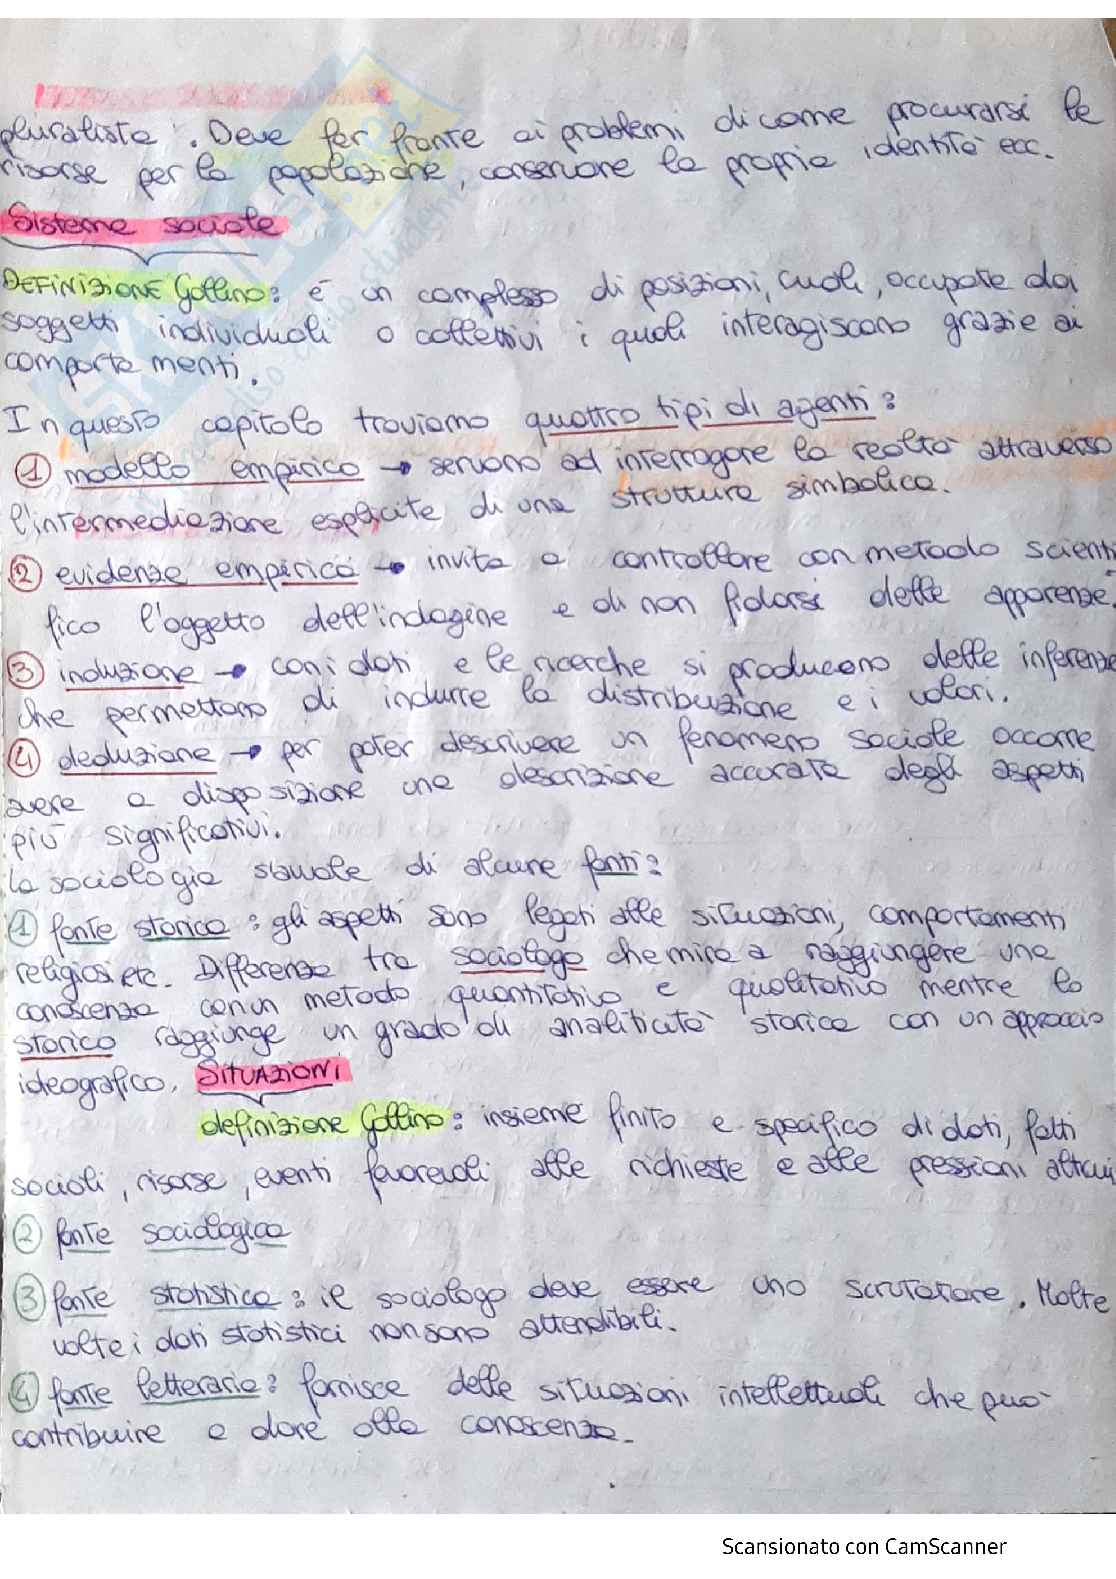 pluralista. Deve far fronte ai problemi di come procurarsi le
risorse per la popolazione, conservare la propria identità ecc.
Sistema sociale
DEFINIZIONE Gallino: è un complesso di posizioni, ruoli, occupate da
soggetti individuali o collettivi i quali interagiscono grazie ai
comportamenti.
In questo capitolo troviamo quattro tipi di agenti:
① modello empirico → servono ad interrogare la realtà attraverso
l'intermediazione esplicite di una struttura simbolica.
② evidenze empirica → invita a controllare con metodo scienti
fico l'oggetto dell'indagine e di non fidarsi delle apparenze.
③ induzione → con i dati e le ricerche si producono delle inferenze
che permettono di indurre la distribuzione e i valori.
④ deduzione → per poter descrivere un fenomeno sociale occorre
avere a disposizione una descrizione accurata degli aspetti
più significativi.
La sociologia si avvale di alcune fonti:
① fonte storica: gli aspetti sono legati alle situazioni, comportamenti
religiosi etc. Differenza tra sociologo che mira a raggiungere una
conoscenza con un metodo quantitativo e qualitativo mentre lo
storico raggiunge un grado di analiticità storica con un approccio
ideografico. SITUAZIONI
definizione Gallino: insieme finito e specifico di dati, fatti
sociali, risorse, eventi favorevoli alle richieste e alle pressioni altrui
② fonte sociologica
③ fonte statistica: il sociologo deve essere uno scrutatore. Molte
volte i dati statistici non sono attendibili.
④ fonte letteraria: fornisce delle situazioni intellettuali che può
contribuire a dare alla conoscenza.
Scansionato con CamScanner